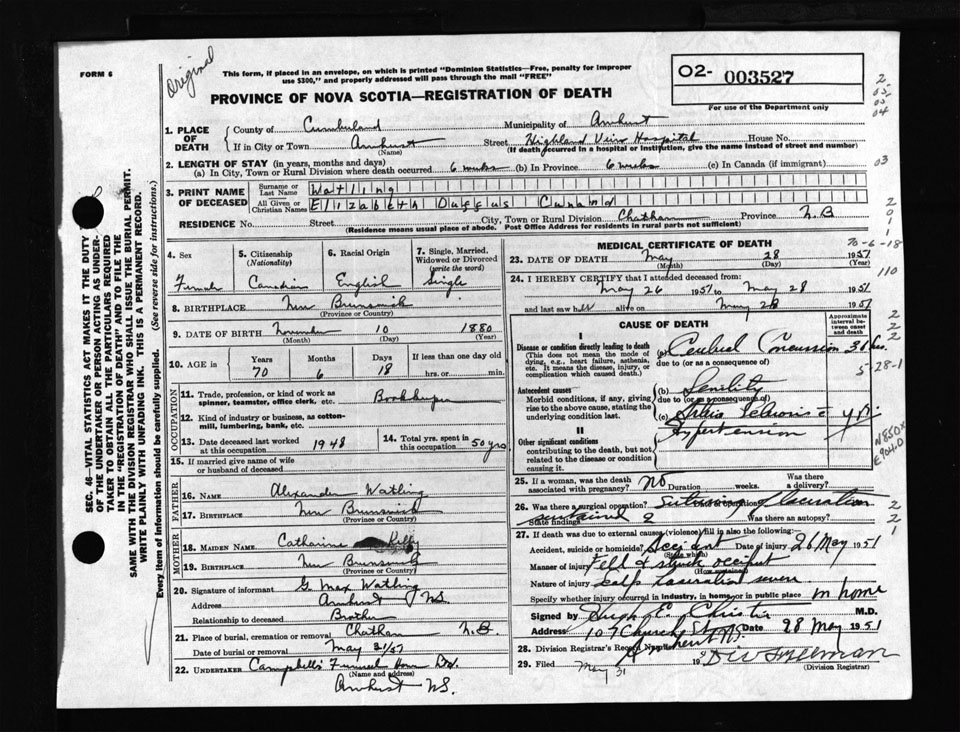 FORM 6
Original
This form, if placed in an envelope, on which is printed "Dominion Statistics—Free, penalty for improper
use $300," and properly addressed will pass through the mail "FREE"
O2- 003527
For use of the Department only
PROVINCE OF NOVA SCOTIA—REGISTRATION OF DEATH
1. PLACE OF DEATH
County of Cumberland Municipality of Amherst
If in City or Town Amherst Street Highland View Hospital House No.
(Name) (If death occurred in a hospital or institution, give the name instead of street and number)
2. LENGTH OF STAY (in years, months and days)
(a) In City, Town or Rural Division where death occurred 6 weeks (b) In Province 6 weeks (c) In Canada (if immigrant)
3. PRINT NAME OF DECEASED
Surname or Last Name Watling
All Given or Christian Names Elizabeth Duffus Cunard
RESIDENCE No. Street City, Town or Rural Division Chatham Province N.B
(Residence means usual place of abode. Post Office Address for residents in rural parts not sufficient)
4. Sex
Female
5. Citizenship
(Nationality)
Canadian
6. Racial Origin
English
7. Single, Married,
Widowed or Divorced
(write the word)
Single
8. BIRTHPLACE New Brunswick
(Province or Country)
9. DATE OF BIRTH November 10 1880
(Month) (Day) (Year)
10. AGE in Years Months Days If less than one day old
70 6 18 hrs. or min.
OCCUPATION
11. Trade, profession, or kind of work as
spinner, teamster, office clerk, etc. Bookkeeper
12. Kind of industry or business, as cotton-
mill, lumbering, bank, etc.
13. Date deceased last worked
at this occupation 1948
14. Total yrs. spent in
this occupation 50 yrs
15. If married give name of wife
or husband of deceased
FATHER
16. Name Alexander Watling
17. Birthplace New Brunswick
(Province or Country)
MOTHER
18. Maiden Name Catharine
19. Birthplace New Brunswick
(Province or Country)
20. Signature of informant G. Max Watling
Address Amherst NS.
Relationship to deceased Brother
21. Place of burial, cremation or removal Chatham N.B.
Date of burial or removal May 31/51
22. Undertaker Campbell's Funeral Home Ltd.
(Name and address)
Amherst NS.
MEDICAL CERTIFICATE OF DEATH
23. DATE OF DEATH May 28 1951
(Month) (Day) (Year)
24. I HEREBY CERTIFY that I attended deceased from:
May 26 1951 to May 28 1951
and last saw her alive on May 28 1951
CAUSE OF DEATH
Approximate
interval be-
tween onset
and death
I
Disease or condition directly leading to death
(This does not mean the mode of
dying, e.g., heart failure, asthenia,
etc. It means the disease, injury, or
complication which caused death.)
(a) Cerebral Concussion 36 hrs.
due to (or as a consequence of)
Antecedent causes
Morbid conditions, if any, giving
rise to the above cause, stating the
underlying condition last.
(b) Senility
due to (or as a consequence of)
(c)
Hypertension
II
Other significant conditions
contributing to the death, but not
related to the disease or condition
causing it.
25. If a woman, was the death
associated with pregnancy? No Duration weeks. Was there
a delivery?
26. Was there a surgical operation? Suturing of laceration
State findings sustained Was there an autopsy?
27. If death was due to external causes (violence) fill in also the following:
Accident, suicide or homicide? Accident Date of injury 26 May 1951
(State which)
Manner of injury Fell & struck occiput
(How sustained)
Nature of injury scalp laceration severe
Specify whether injury occurred in industry, in home, or in public place in home
Signed by Hugh E. Christie M.D.
Address 107 Church St Date 28 May 1951
Amherst NS.
28. Division Registrar's Record Number
29. Filed May 31 19
(Division Registrar)
SEC. 46—VITAL STATISTICS ACT MAKES IT THE DUTY
OF THE UNDERTAKER OR PERSON ACTING AS UNDER-
TAKER TO OBTAIN ALL THE PARTICULARS REQUIRED
IN THE "REGISTRATION OF DEATH" AND TO FILE THE
SAME WITH THE DIVISION REGISTRAR WHO SHALL ISSUE THE BURIAL PERMIT.
WRITE PLAINLY WITH UNFADING INK. THIS IS A PERMANENT RECORD.
Every item of information should be carefully supplied. (See reverse side for instructions.)
2
03
03
04
03
2
0
1
1
1
70-6-18
110
2
2
2
5-28-1
N850x
E904.0
2
2
1